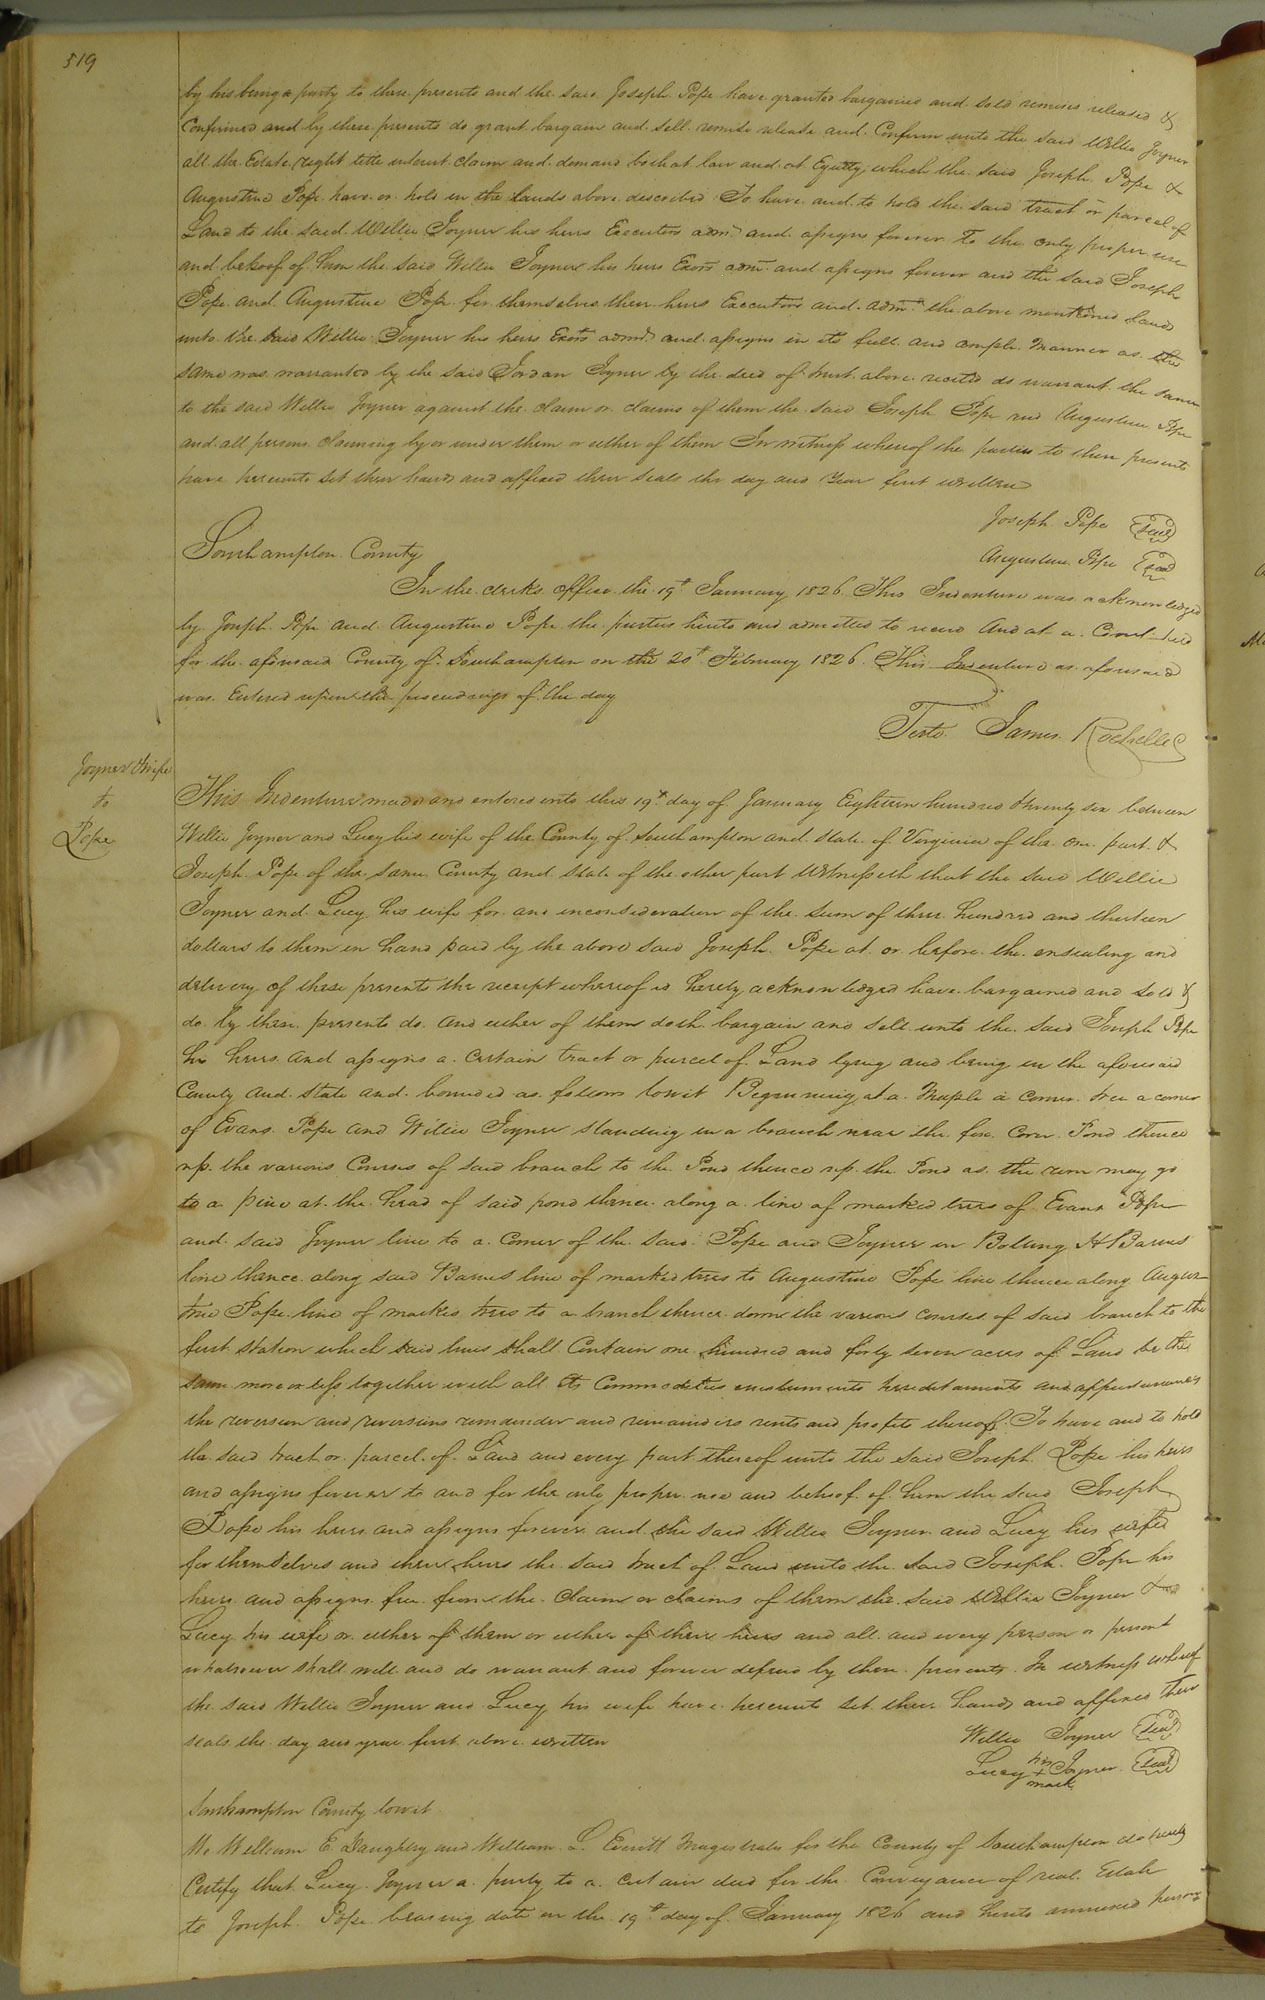 519
by his being a party to these presents and the said Joseph Pope have granted bargained and sold remised released &
Confirmed and by these presents do grant bargain and sell remise release and Confirm unto the said Willie Joyner
all the Estate right title interest claim and demand both at law and at Equity which the said Joseph Pope &
Augustine Pope have or hold in the lands above described To have and to hold the said tract or parcel of
Land to the said Willie Joyner his heirs Executors adm^rs and assigns forever To the only proper use
and behoof of him the said Willie Joyner his heirs Exors adm^rs and assigns forever and the said Joseph
Pope and Augustine Pope for themselves their heirs Executors and adm^rs the above mentioned Land
unto the said Willie Joyner his heirs Exors admrs and assigns in its full and ample manner as the
same was warranted by the said Jordan Joyner by the deed of trust above recited do warrant the same
to the said Willie Joyner against the claim or claims of them the said Joseph Pope and Augustine Pope
and all persons claiming by or under them or either of them In witness whereof the parties to these presents
have hereunto set their hands and affixed their seals the day and Year first written
Joseph Pope Seal
Augustine Pope Seal
Southampton County
In the clerks office the 19th January 1826 This Indenture was acknowledged
by Joseph Pope and Augustine Pope the parties hereto and admitted to record And at a Court held
for the aforesaid County of Southampton on the 20th February 1826 This Indenture as aforesaid
was Entered upon the proceedings of the day
Teste James Rochelle
Joyner & wife
to
Pope
This Indenture made and entered into this 19th day of January Eighteen hundred & twenty six between
Willie Joyner and Lucy his wife of the County of Southampton and State of Virginia of the one part &
Joseph Pope of the same County and State of the other part Witnesseth that the said Willie
Joyner and Lucy his wife for and inconsideration of the sum of three hundred and thirteen
dollars to them in hand paid by the above said Joseph Pope at or before the ensealing and
delivery of these presents the receipt whereof is hereby acknowledged have bargained and sold &
do by these presents do and either of them doth bargain and sell unto the said Joseph Pope
his heirs and assigns a certain tract or parcel of Land lying and being in the aforesaid
County and State and bounded as follows towit Beginning at a Maple a corner tree a corner
of Evans Pope and Willie Joyner standing in a branch near the Corn Pond thence
up the various Courses of said branch to the Pond thence up the Pond as the run may go
to a pine at the head of said pond thence along a line of marked trees of Evans Pope
and said Joyner line to a corner of the said Pope and Joyner in Bolling H Barnes
line thence along said Barnes line of marked trees to Augustine Pope line thence along Augus
tine Pope line of marked trees to a branch thence down the various courses of said branch to the
first station which said lines shall Contain one hundred and forty seven acres of Land be the
same more or less together with all its Commodities emoluments hereditaments and appurtenances
the reversion and reversions remainder and remainders rents and profits thereof To have and to hold
the said tract or parcel of Land and every part thereof unto the said Joseph Pope his heirs
and assigns forever to and for the only proper use and behoof of him the said Joseph
Pope his heirs and assigns forever and the said Willie Joyner and Lucy his wife
for themselves and their heirs the said tract of Land unto the said Joseph Pope his
heirs and assigns free from the claim or claims of them the said Willie Joyner &
Lucy his wife or either of them or either of their heirs and all and every person or persons
whatsoever shall will and do warrant and forever defend by these presents In witness whereof
the said Willie Joyner and Lucy his wife have hereunto set their hands and affixed their
seals the day and year first above written
Willie Joyner Seal
Lucy his + mark Joyner Seal
Southampton County towit
We William E Daughtry and William L. Everitt Magistrates for the County of Southampton do hereby
Certify that Lucy Joyner a party to a certain deed for the Conveyance of real Estate
to Joseph Pope bearing date on the 19th day of January 1826 and hereto annexed person